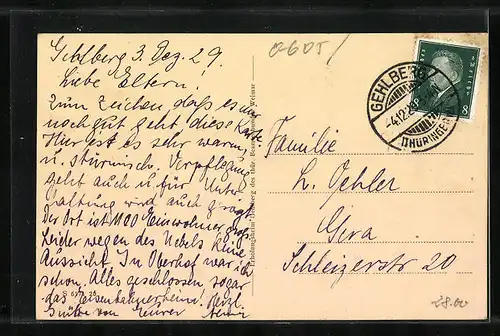 Gehlberg 3. Dez. 29.
Liebe Eltern!
Zum Zeichen, daß es uns
noch gut geht, diese Karte
Hier ist es sehr warm
u. stürmisch, Verpflegung
geht auch u. für Unter-
haltung wird auch gesorgt
Der Ort ist 1100 Einwohner groß
Leider wegen des Nebels keine
Aussicht. In Oberhof war ich
schon, Alles geschlossen, sogar
das Eisenbahnerheim. Herzl.
Grüße von Eurer
Familie
L. Oehler
Gera
Schleizerstr 20
GEHLBERG
-4.12.29
(THÜRINGEN)
8
28.00